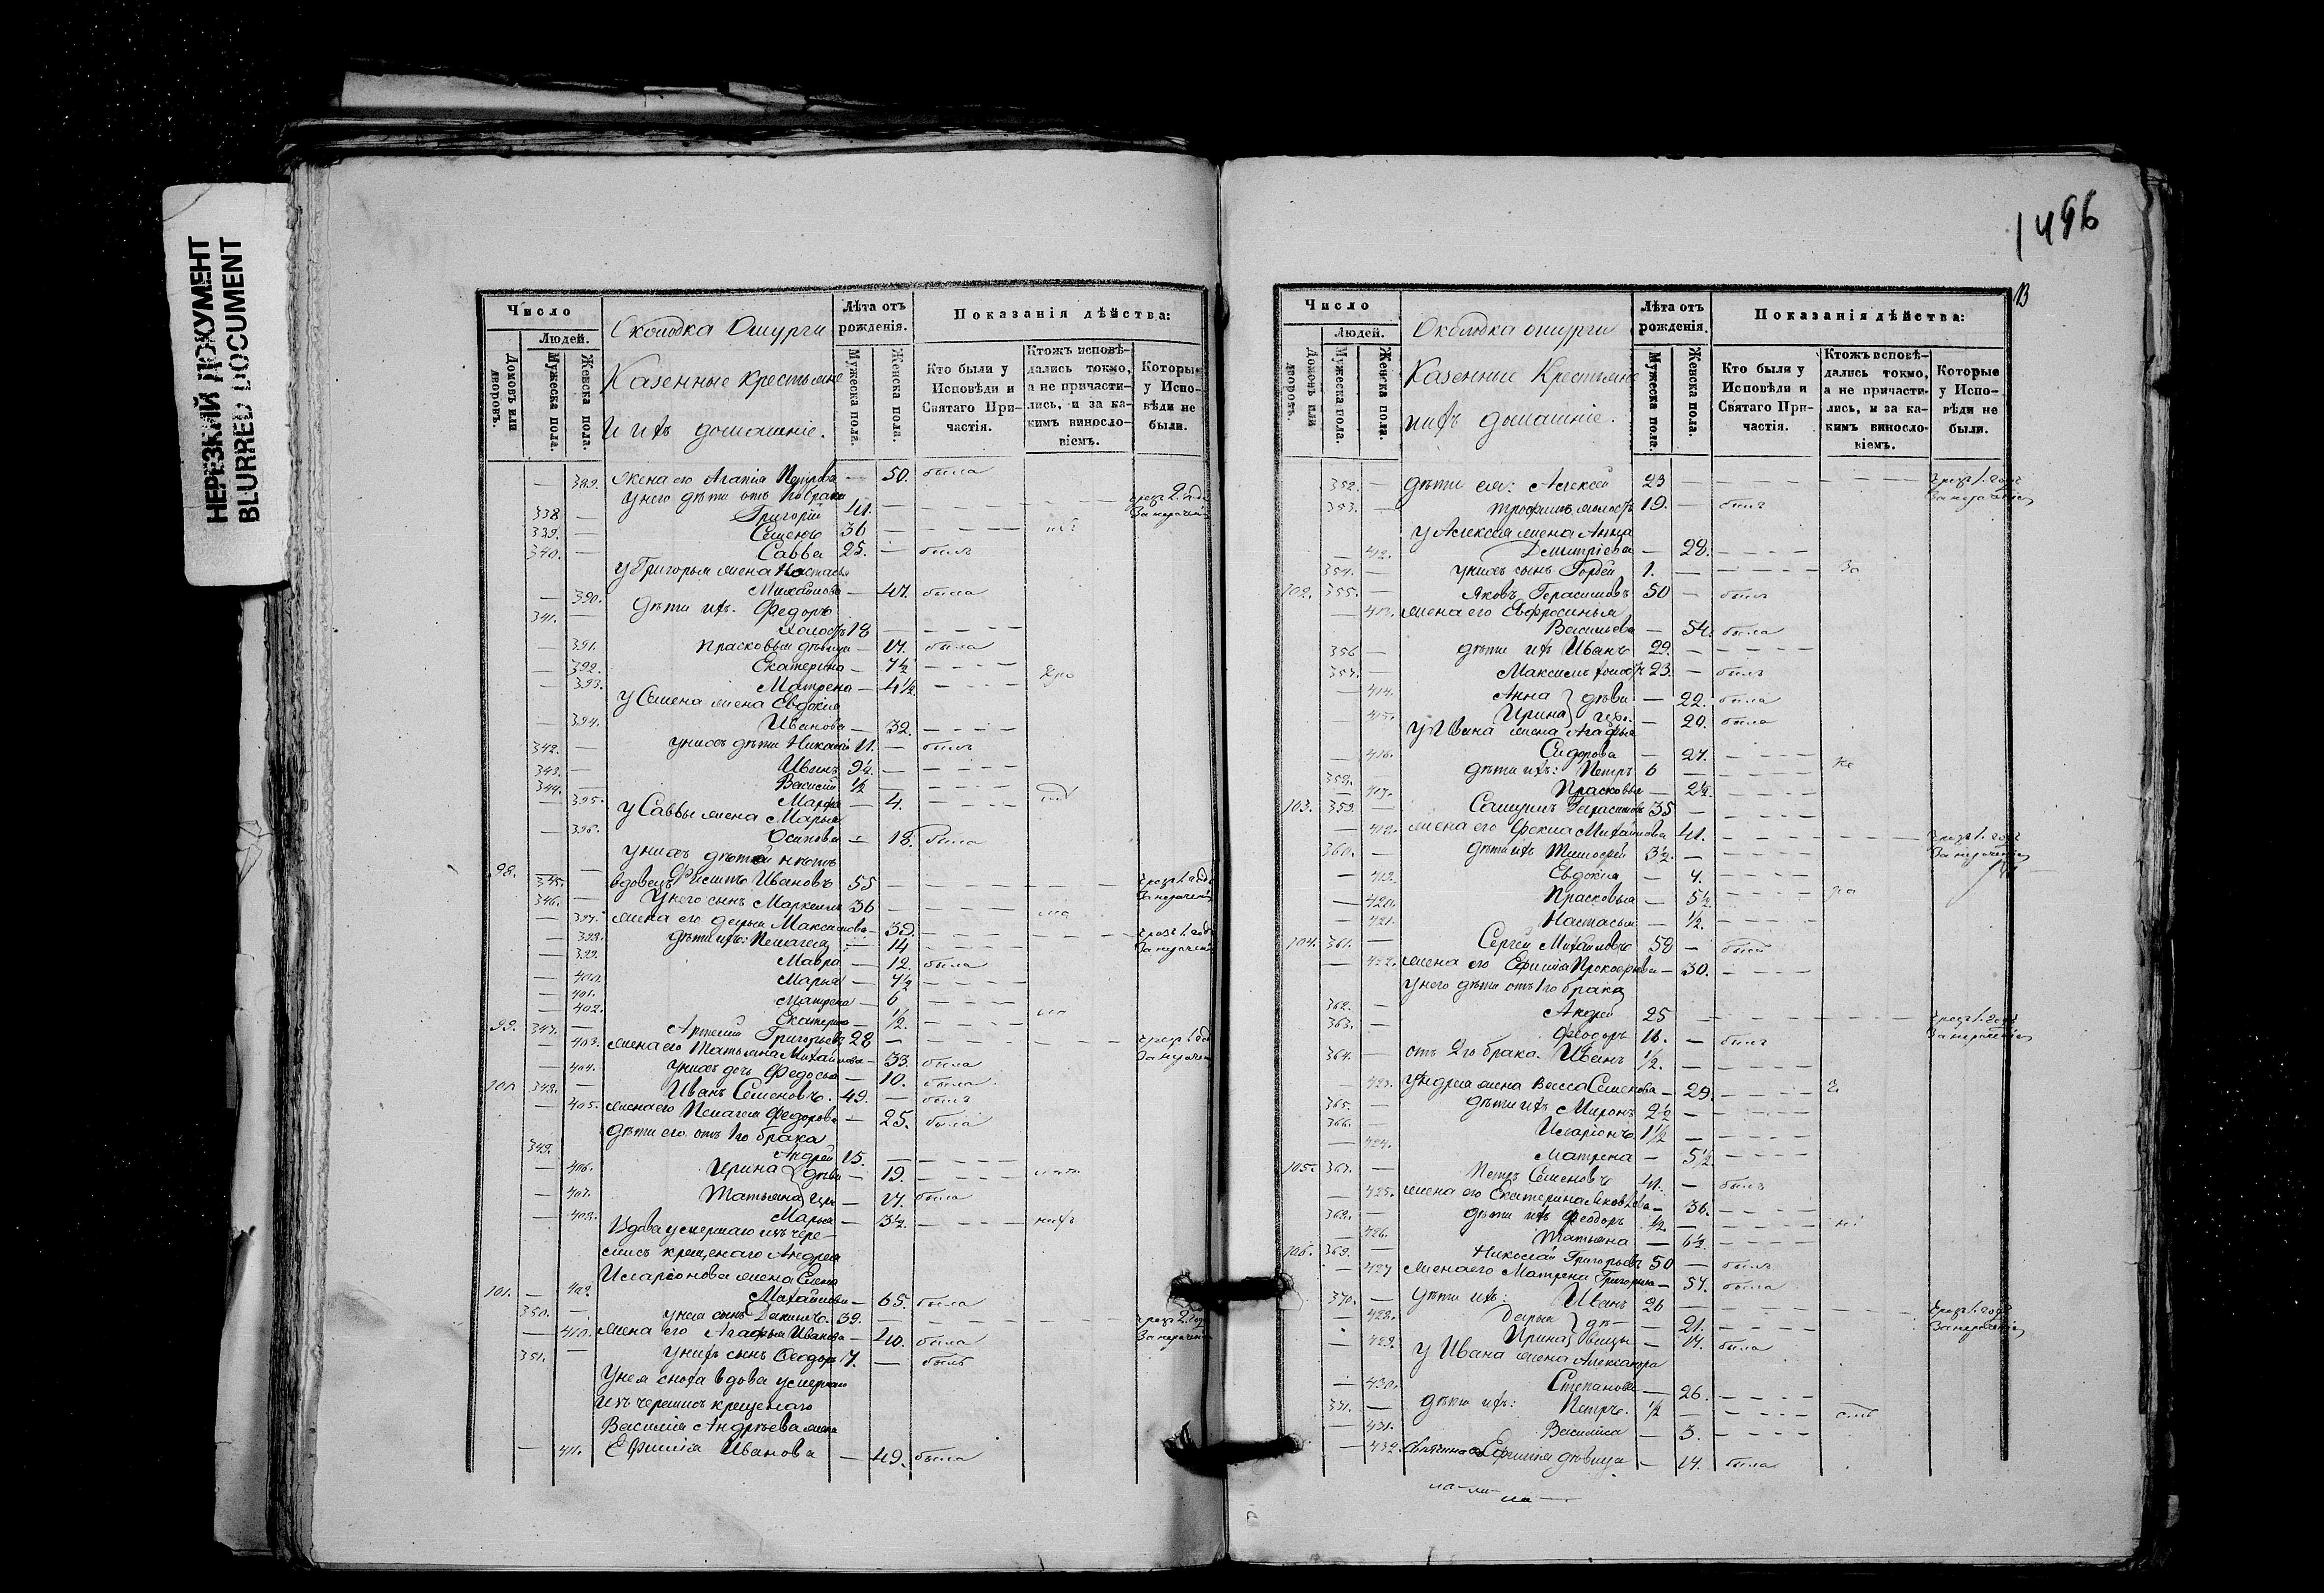 НЕРЕЗКИЙ ДОКУМЕНТ
BLURRED DOCUMENT
Число
Людей.
Домовъ или дворовъ.
Мужеска пола.
Женска пола.
Околодка Ошурги
Казенные Крестьяне
и ихъ домашніе.
Лѣта отъ рожденія.
Мужеска пола.
Женска пола.
Показанія дѣйства:
Кто были у Исповѣди и Святаго Причастія.
Ктожъ исповѣдались токмо, а не причастились, и за какимъ винословіемъ.
Которые у Исповѣди не были.
— 389. жена его Агапія Петрова — 50. была
у него дѣти отъ 1го брака
338 — Григорій 41. чрезъ 2. года за нераченіе
339. — Семенъ 36 —
340. — Савва 25. — былъ
у Григорья жена Настасья
— 390. Михайлова — 47. была
341. — дѣти ихъ. Федоръ
холостъ 18 —
— 391. Прасковья дѣвица — 17. была
— 392. Екатерина — 7½
— 393. Матрена — 4½
у Семена жена Евдокія
— 394. Иванова — 32.
342. — у нихъ дѣти Николай 11. — былъ
343. — Иванъ 9½. —
344. — Василій ½ —
— 395. Марфа — 4.
у Саввы жена Марья
— 396. Осипова — 18. была
у нихъ дѣтей нѣтъ
98. 345. — вдовецъ Филипъ Ивановъ 55 — чрезъ 1. годъ за нераченіе
346. — У него сынъ Маркелъ 36 —
— 397. жена его Дарья Максимова — 39. чрезъ 1. годъ
— 398. дѣти ихъ: Пелагея — 14 за нераченіе
— 399. Мавра — 12. была
— 400. Марья — 7½
— 401. Матрена — 6
— 402. Екатерина — ½.
99. 347. — Артемій Григорьевъ 28 — чрезъ 1. годъ
— 403. жена его Татьяна Михайлова — 33. была за нераченіе
— 404. у нихъ дочь Федосья — 10. была.
100. 348. — Иванъ Семеновъ. 49. — былъ
— 405. жена его Пелагея Федорова — 25. была
дѣти его отъ 1го брака
349. Андрей 15. —
— 406. Ирина } дѣви — 19.
— 407. Татьяна } цы — 17. была
— 408. Марья — 3½. нихъ
Вдова умершаго изъ чере-
мисъ крещенаго Андрея
Иларіонова жена Елена
101. — 409. Михайлова — 65. была
350. — у нея сынъ Данилъ. 39. — чрезъ 2. года
— 410. жена его Агафья Иванова — 40. была за нераченіе
351. — у нихъ сынъ Феодоръ 17. — былъ
У нея сноха вдова умершаго
изъ черемисъ крещенаго
Василія Андрѣева жена
— 411. Ефимія Иванова — 49. была
1496
13
Число
Людей.
Домовъ или дворовъ.
Мужеска пола.
Женска пола.
Околодка ошурги
Казенные Крестьяне
и ихъ домашніе.
Лѣта отъ рожденія.
Мужеска пола.
Женска пола.
Показанія дѣйства:
Кто были у Исповѣди и Святаго Причастія.
Ктожъ исповѣдались токмо, а не причастились, и за какимъ винословіемъ.
Которые у Исповѣди не были.
352. — дѣти ея: Алексѣй 23 чрезъ 1. годъ за нераченіе
353. — Трофимъ холостъ 19. — былъ
у Алексѣя жена Анна
— 412. Дмитріева — 28.
354. — у нихъ сынъ Гордей 1. — За
102. 355. — Яковъ Герасимовъ 50 — былъ
— 413. жена его Евфросинья
Васильева — 54. была
356 — дѣти ихъ Иванъ 29. —
357. — Максимъ холостъ 23. — былъ
— 414. Анна } дѣви — 22. была
— 415. Ирина } цы. — 20. была
у Ивана жена Агафья
— 416. Сидорова — 27. не
358. — дѣти ихъ: Петръ 6 —
— 417. Прасковья — 2½.
103. 359. — Самуилъ Герасимовъ 35 —
— 418. жена его Фекла Михайлова 41. чрезъ 1. годъ
360. — дѣти ихъ Тимофей 3½. — за нераченіе
— 419. Евдокія — 4.
— 420. Прасковья — 5½. ра
— 421. Настасья — ½.
104. 361. — Сергѣй Михайловъ 58 — былъ
— 422. жена его Ефимія Прокофьева — 30.
у него дѣти отъ 1го брака
362. — Андрей 25 — чрезъ 1. годъ
363. — Феодоръ 16. — былъ за нераченіе
364. — отъ 2го брака Иванъ ½. —
— 423. у Андрея жена Васса Семенова — 29.
365. — дѣти ихъ Миронъ 2½ —
366. — Иларіонъ 1½ —
— 424. Матрена — 5½
105. 367. — Петръ Семеновъ 41. — былъ
— 425. жена его Екатерина Яковлева — 36.
368. — дѣти ихъ Феодоръ ½. —
— 426. Татьяна — 6½.
106. 369. — Николай Григорьевъ 50 — былъ
— 427 жена его Матрена Григорьева — 57. была
370. — дѣти ихъ: Иванъ 26 — чрезъ 1. годъ
— 428. Дарья } дѣ- — 21. за нераченіе
— 429. Ирина } вицы — 14. была
у Ивана жена Александра
— 430. Степанова — 26.
371. — дѣти ихъ: Петръ. ½ —
— 431. Василиса — 3.
— 432. Ефимія дѣвица — 14. была